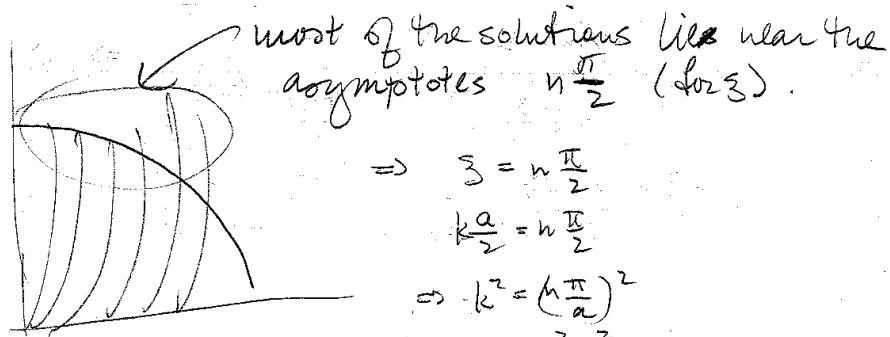 most of the solutions lies near the
asymptotes n π/2 (for ξ).
⇒ ξ = n π/2
k a/2 = n π/2
⇒ k² = (n π/a)²